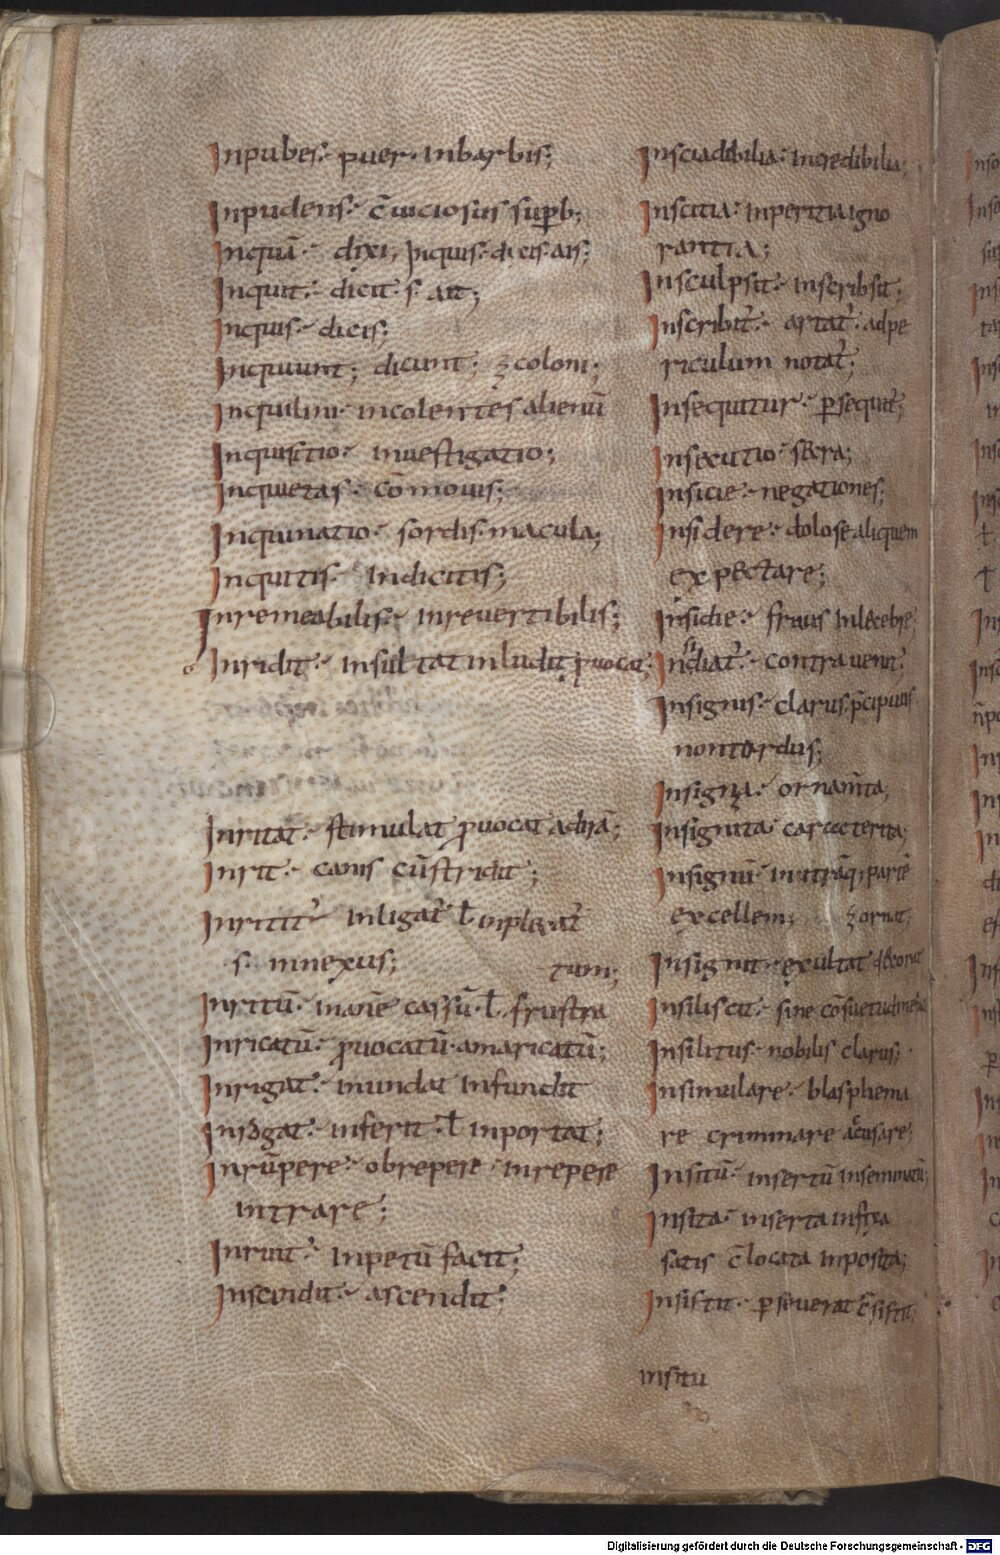 Inpubes: puer inbarbis;
Inpudens: c̄uiciosus superb;
Inquā: dixi, Inquis: dicis ais;
Inquit: dicit s. ait;
Inquis: dicis;
Inquiunt; dicunt; ⁊ coloni;
Inquilini: incolentes alienū
Inquisitio: inuestigatio;
Inquietas: cōmouis;
Inquinatio: sordis macula;
Inquitis: Indicitis;
Inremeabilis: inreuertibilis;
Inridit: insultat inludit puocat
Inritat: stimulat puocat adirā;
Inrit: canis cū stridit;
Inritit᷑ inligat᷑ ł inplexat᷑
s. innexus;
tum;
Inritū: inane cassū ł frustra
Inricatū: puocatū amaricatū;
Inrigat: inundat infundit
Inrogat: inferit ł inportat;
Inrūpere: obrepere inrepere
intrare;
Inruit: inpetū facit;
Inscendit: ascendit;
Insciadibilia: incredibilia;
Inscitia: inperitia igno
rantia;
Insculpsit: inscribsit;
Inscribit᷑: artat᷑ adpe
riculum notat᷑;
Insequitur: psequit᷑;
Insecutio:
Insicie: negationes;
Insidere: dolose aliquem
expectare;
Insidie: fraus inlecebre
Insidiat᷑: contrauenit
Insignis: clarus p̄cipuus
nontardus;
Insigna: ornam̄ta;
Insignita: caracterita;
Insigniū: inutrāq; partē
excellem; ⁊ ornat;
Insignit: exultat decorat
Insiliscit: sine cōsuetudine
Insilitus: nobilis clarus;
Insimulare: blasphema
re criminare acusare;
Insitū: insertū inseminatū;
Insita: inserta infixa
satis c̄locata inposita;
Insistit: pseuerat
insitu
Digitalisierung gefördert durch die Deutsche Forschungsgemeinschaft - DFG